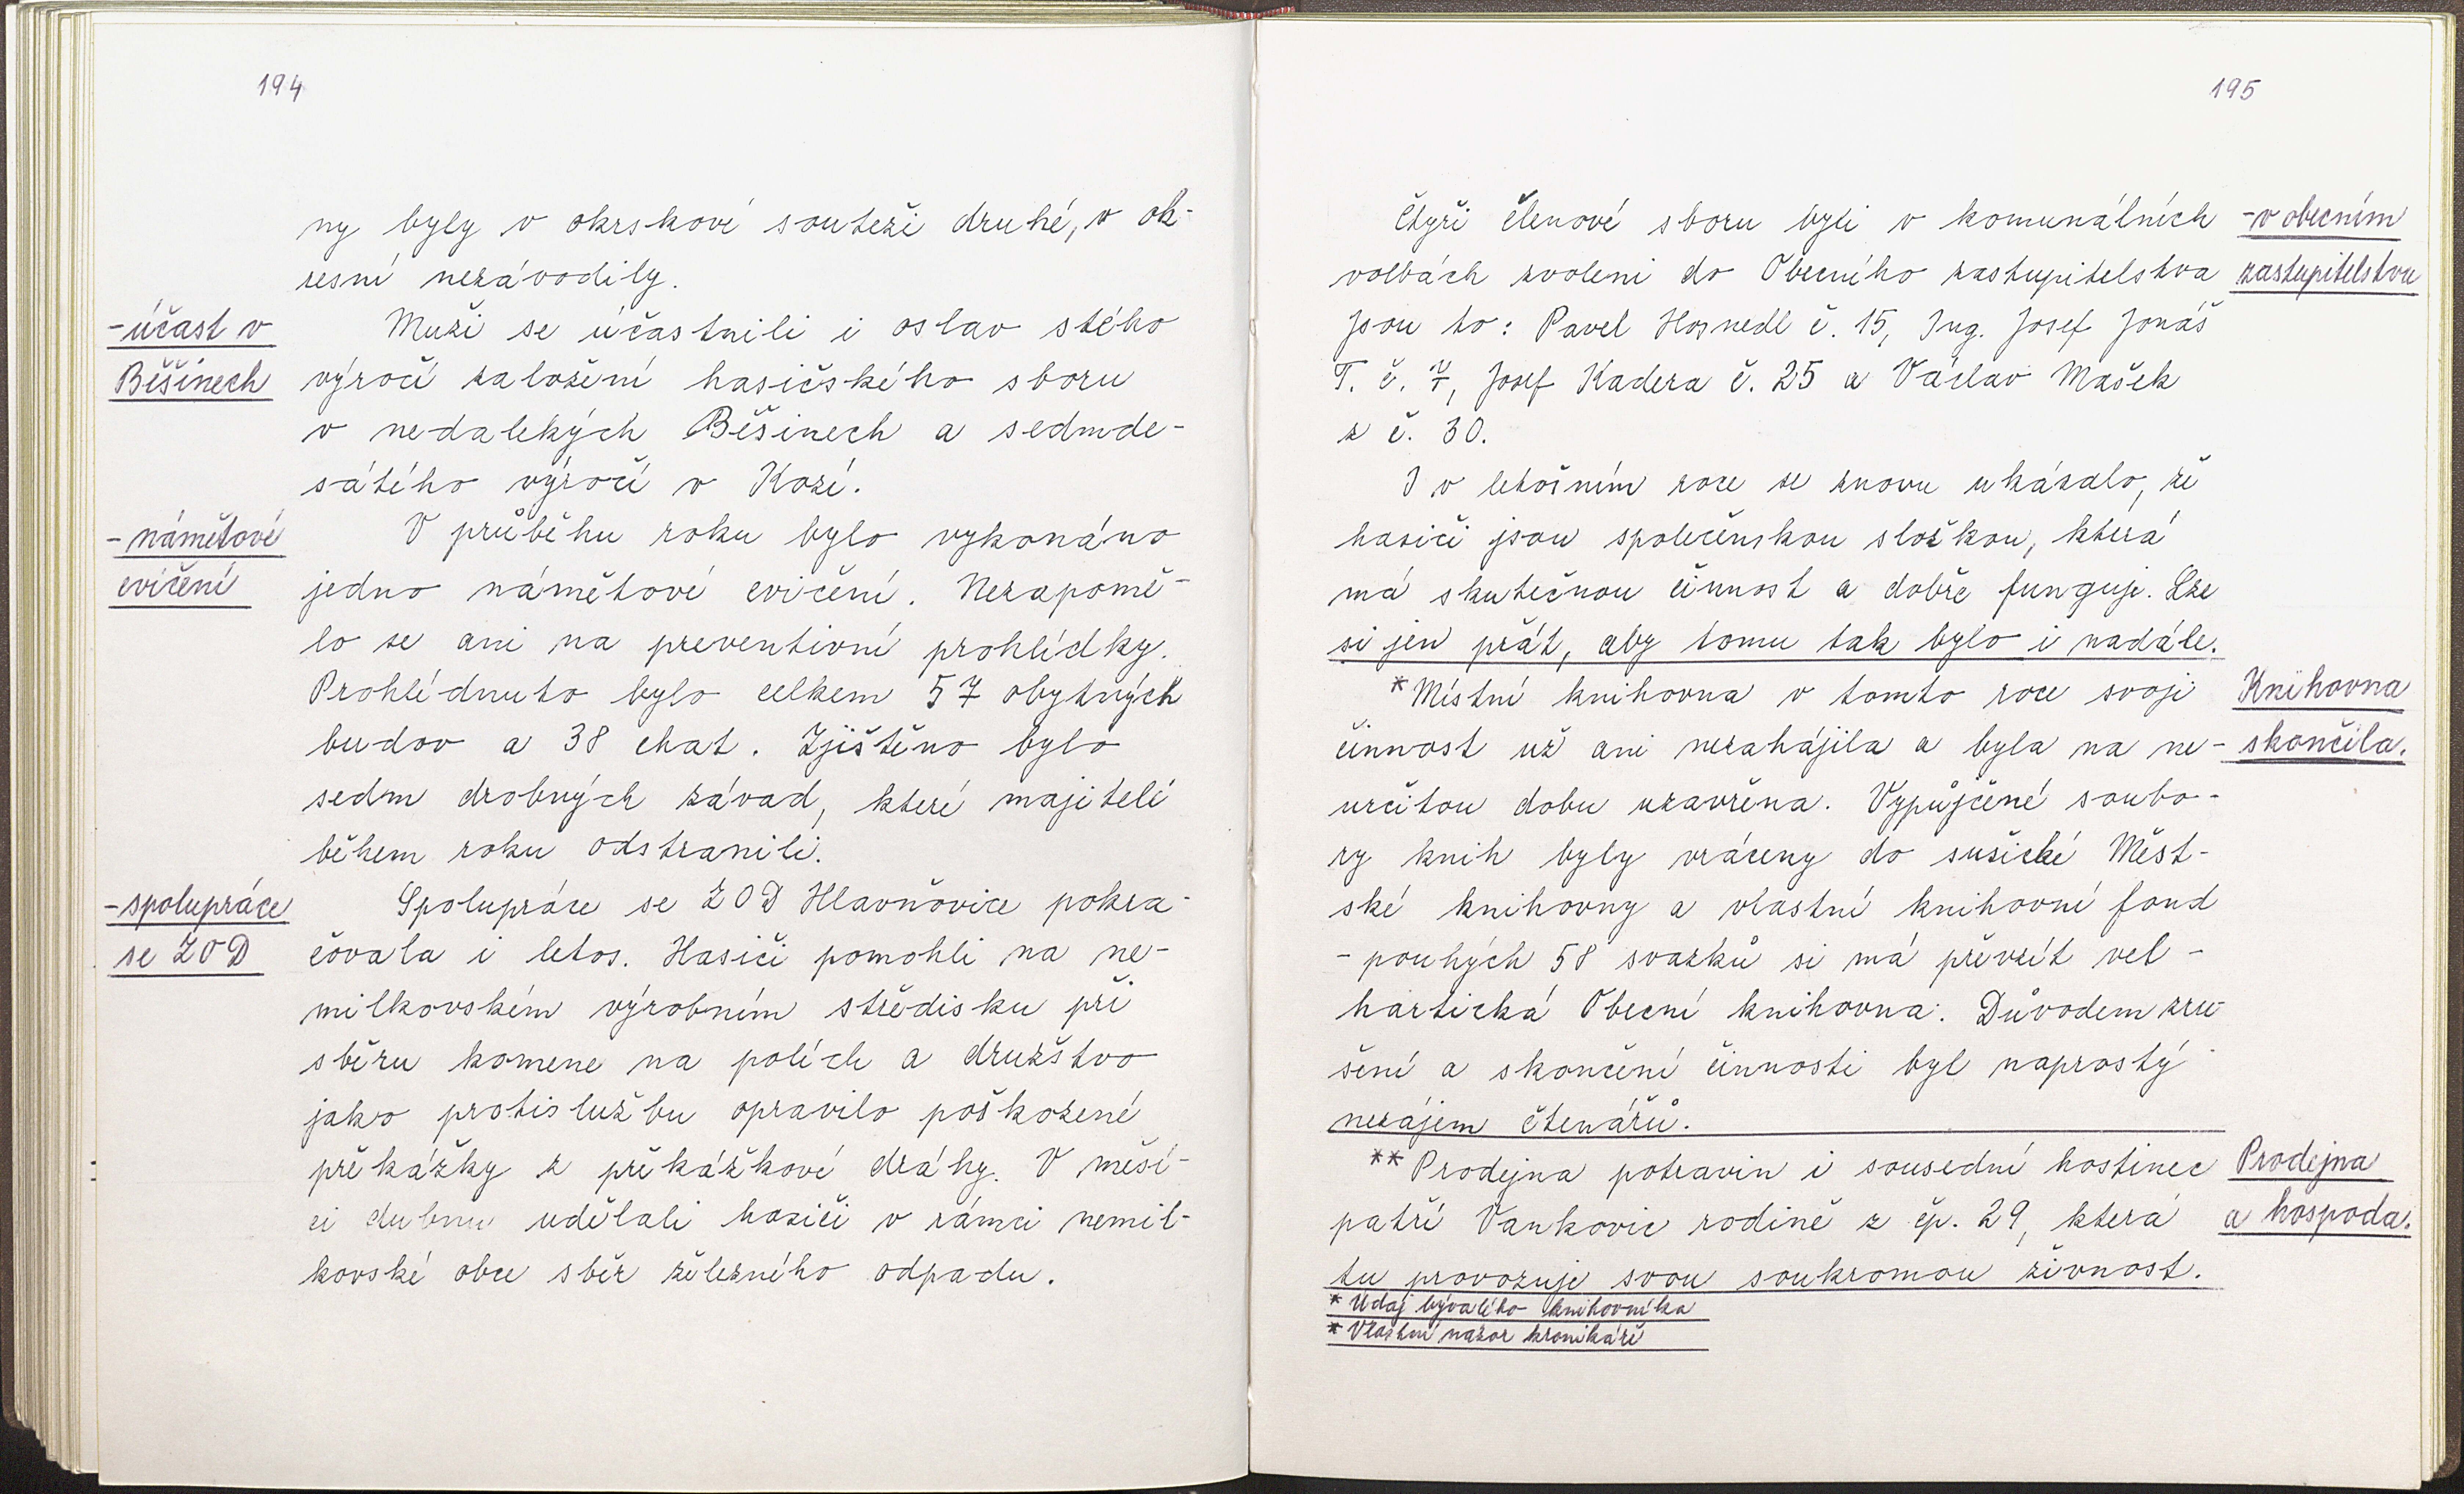 194
ny byly v okrskové soutěži druhé, v ok-
resní nezávodily.
-účast v
Běšinech
Muži se účastnili i oslav stého
výročí založení hasičského sboru
v nedalekých Běšinech a sedmde-
sátého výročí v Kozí.
-námětové
cvičení
V průběhu roku bylo vykonáno
jedno námětové cvičení. Nezapomě-
lo se ani na preventivní prohlídky.
Prohlédnuto bylo celkem 57 obytných
budov a 38 chat. Zjištěno bylo
sedm drobných závad, které majitelé
během roku odstranili.
-spolupráce
se ZOD
Spolupráce se ZOD Hlavňovice pokra-
čovala i letos. Hasiči pomohli na ne-
milkovském výrobním středisku při
sběru kamene na polích a družstvo
jako protislužbu opravilo poškozené
překážky z překážkové dráhy. V měsí-
ci dubnu udělali hasiči v rámci nemil-
kovské obce sběr železného odpadu.
195
Čtyři členové sboru byli v komunálních
volbách zvoleni do Obecního zastupitelstva
Jsou to: Pavel Hosnedl č. 15, Ing. Josef Jonáš
T. č. 7, Josef Kadera č. 25 a Václav Mašek
z č. 30.
-v obecním
zastupitelstvu
I v letošním roce se znovu ukázalo, že
hasiči jsou společenskou složkou, která
má skutečnou činnost a dobře funguje. Lze
si jen přát, aby tomu tak bylo i nadále.
*Místní knihovna v tomto roce svoji
činnost už ani nezahájila a byla na ne-
určitou dobu uzavřena. Vypůjčené soubo-
ry knih byly vráceny do sušické Měst-
ské knihovny a vlastní knihovní fond
- pouhých 58 svazků si má převzít vel-
hartická Obecní knihovna. Důvodem zru-
šení a skončení činnosti byl naprostý
nezájem čtenářů.
Knihovna
skončila.
**Prodejna potravin i sousední hostinec
patří Vankovic rodině z čp. 29, která
tu provozuje svou soukromou živnost.
Prodejna
a hospoda.
* Údaj bývalého knihovníka
* Vlastní názor kronikáře